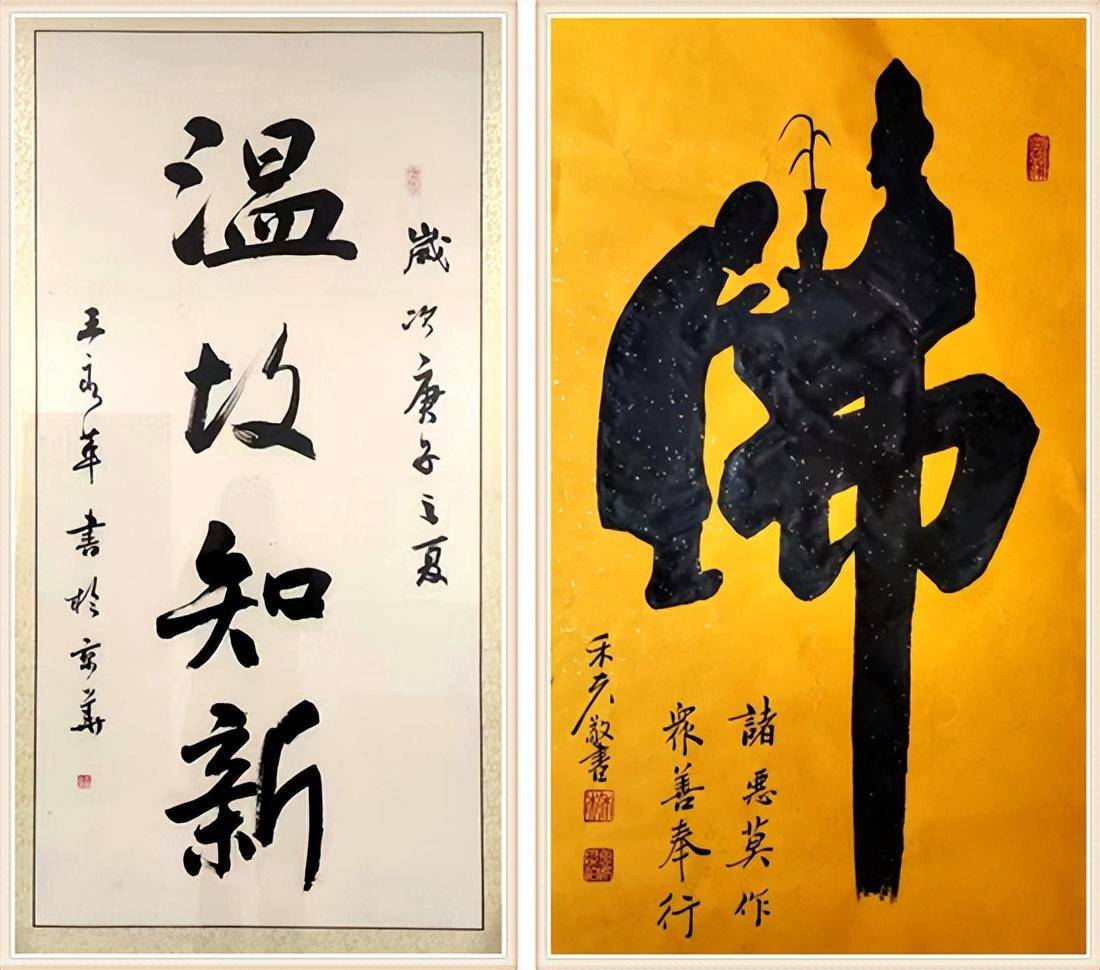 歲次庚子之夏
温故知新
王永革書於京華
佛
諸惡莫作
眾善奉行
禾夫敬書